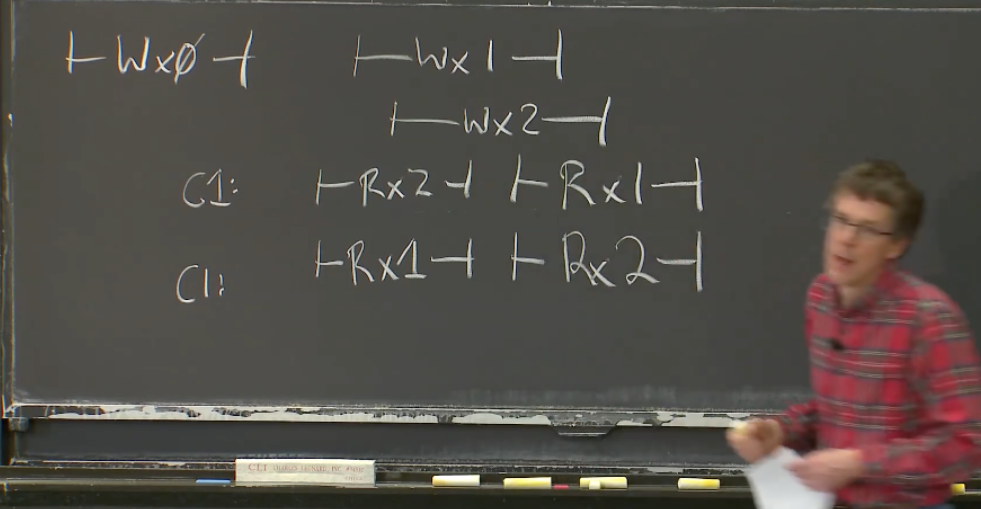 |-Wxø-| |-Wx1-|
|-Wx2-|
C1: |-Rx2-| |-Rx1-|
C1: |-Rx1-| |-Rx2-|